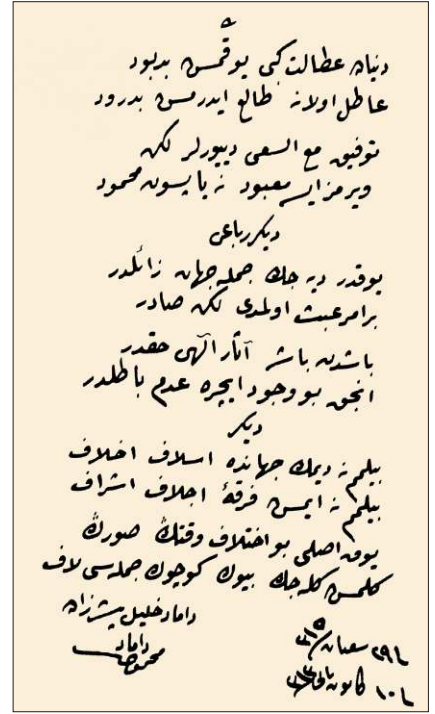 دنیاده عطالت کبی یوقمش بدبود
عاطل اولانه طالع ایدرمش بدرود
توفیق مع السعی دییورلر لکن
ویرمز ایسه معبود نه یاپسون محمود
دیکر رباعی
یوقدر دیه جك جمله جهان زائلدر
بر امر عبث اولمدی لکن صادر
باشدن باشه آثار الٓهی حقدر
انجق بو وجود ایچره عدم باطلدر
دیکر
بیلمم نه دیمك جهانده اسلاف اخلاف
بیلمم نه ایمش فرقهٔ اجلاف اشراف
یوق اصلی بو اختلاف وقتڭ صورڭ
کلمش کله جك بیوك کوچوك جمله سی لاف
داماد خلیل پاشا زاده
داماد
محمود
٢٩ شعبان
١٠ کانون ثانی